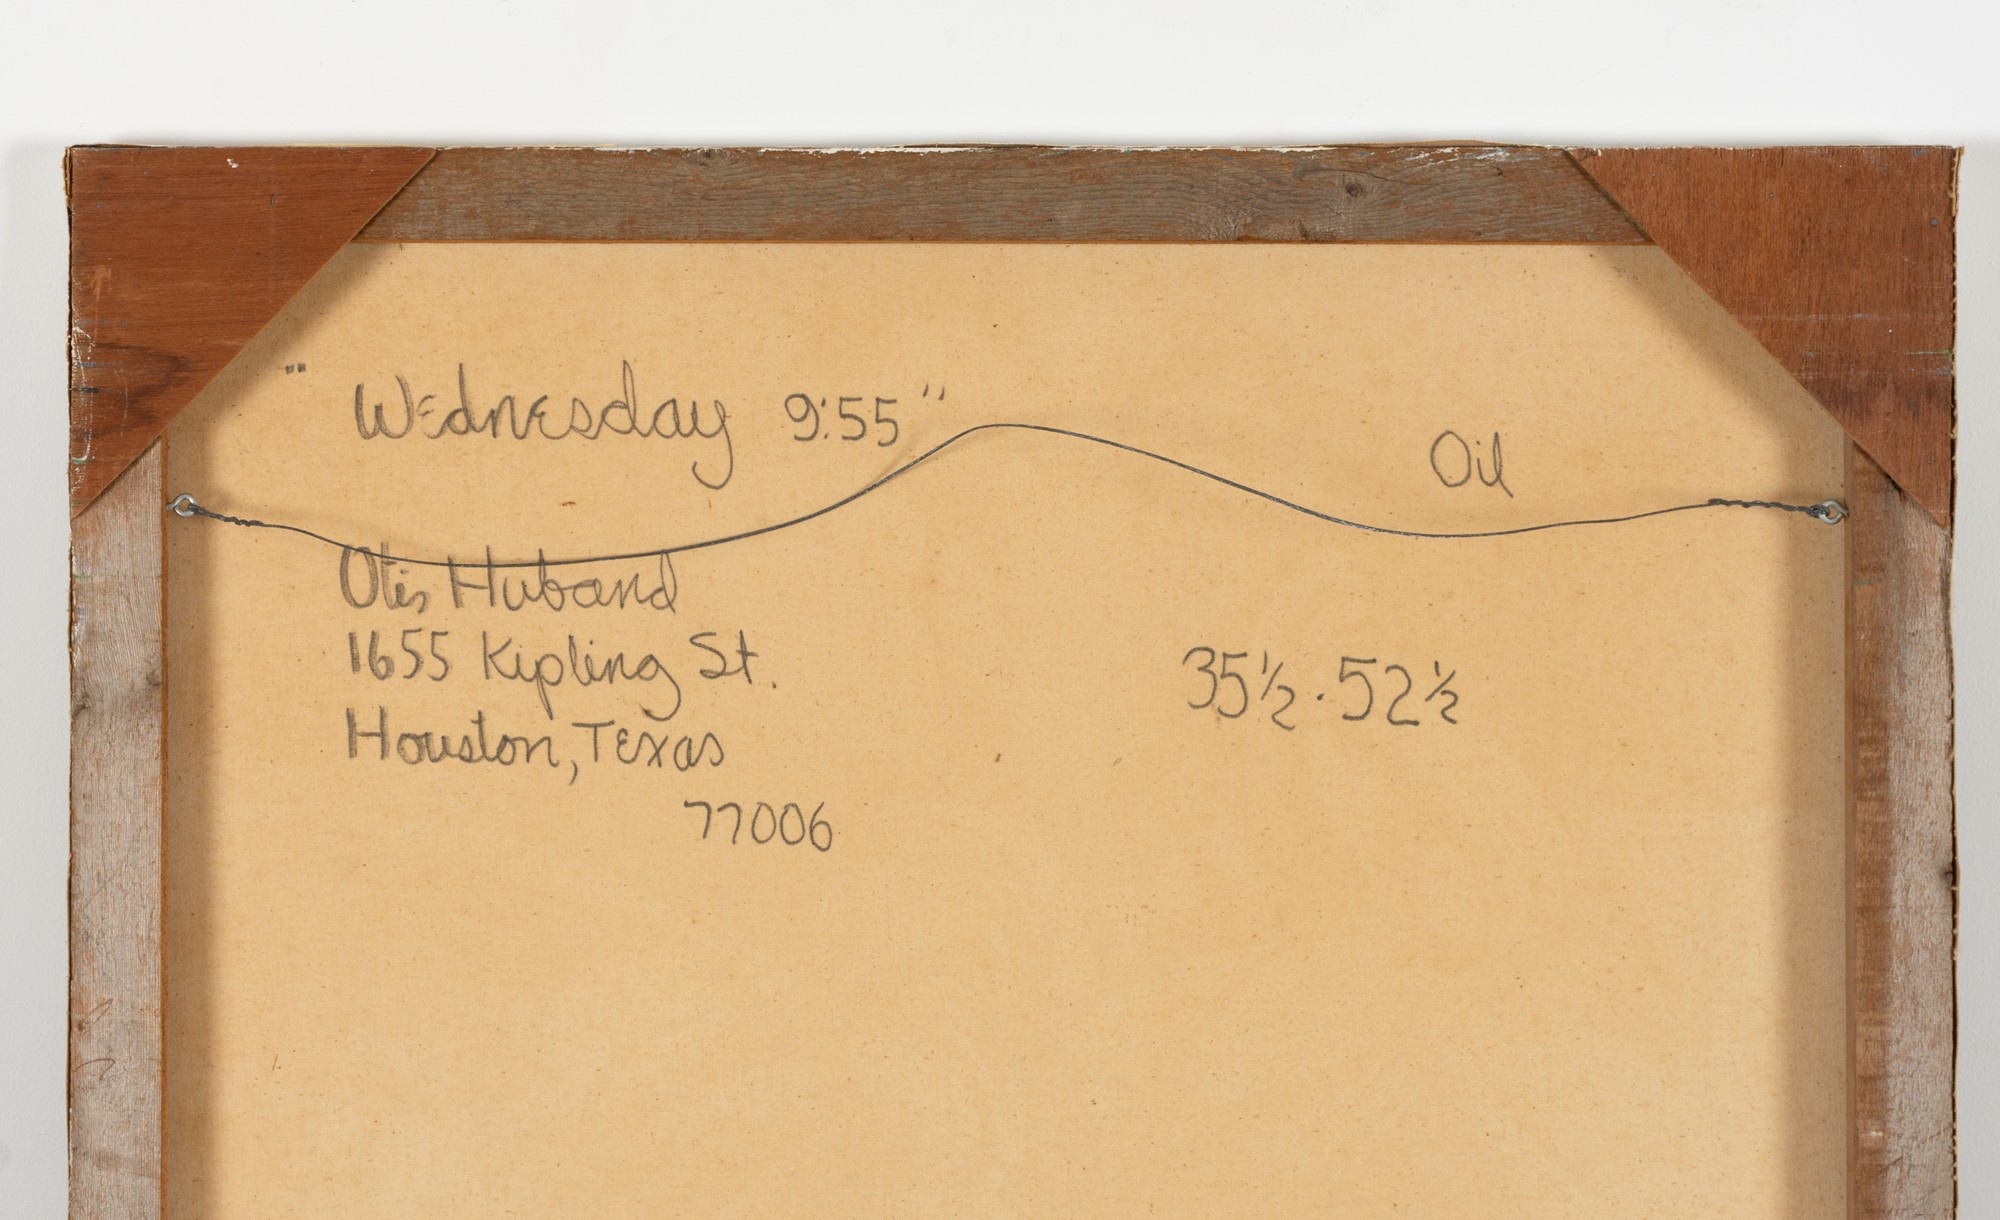 "Wednesday 9:55"
Oil
Otis Huband
1655 Kipling St.
Houston, Texas
77006
35½ · 52½